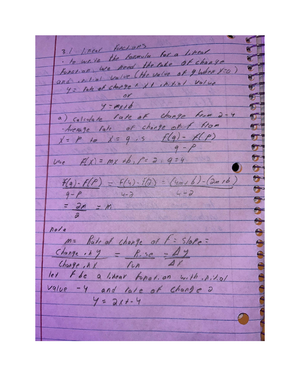 3.1 Linear Functions
- to write the formula for a linear
function we need the rate of change
and initial value (the value of y when x=0)
y = rate of change · x + initial value
or
y = mx+b
a) calculate rate of change from 2→4
Average rate of change of F from
x = P to x = q is F(q) - F(P)
q - P
use F(x) = mx + b, P = 2, q = 4
F(q) - F(P) = F(4) - F(2) = (4m+b) - (2m+b)
q-P 4-2 4-2
= 2m = m
2
Note
m = Rate of change of F = Slope =
Change in y = Rise = Δy
Change in x run Δx
let F be a linear function with initial
value -4 and rate of change 2
y = 2x+-4